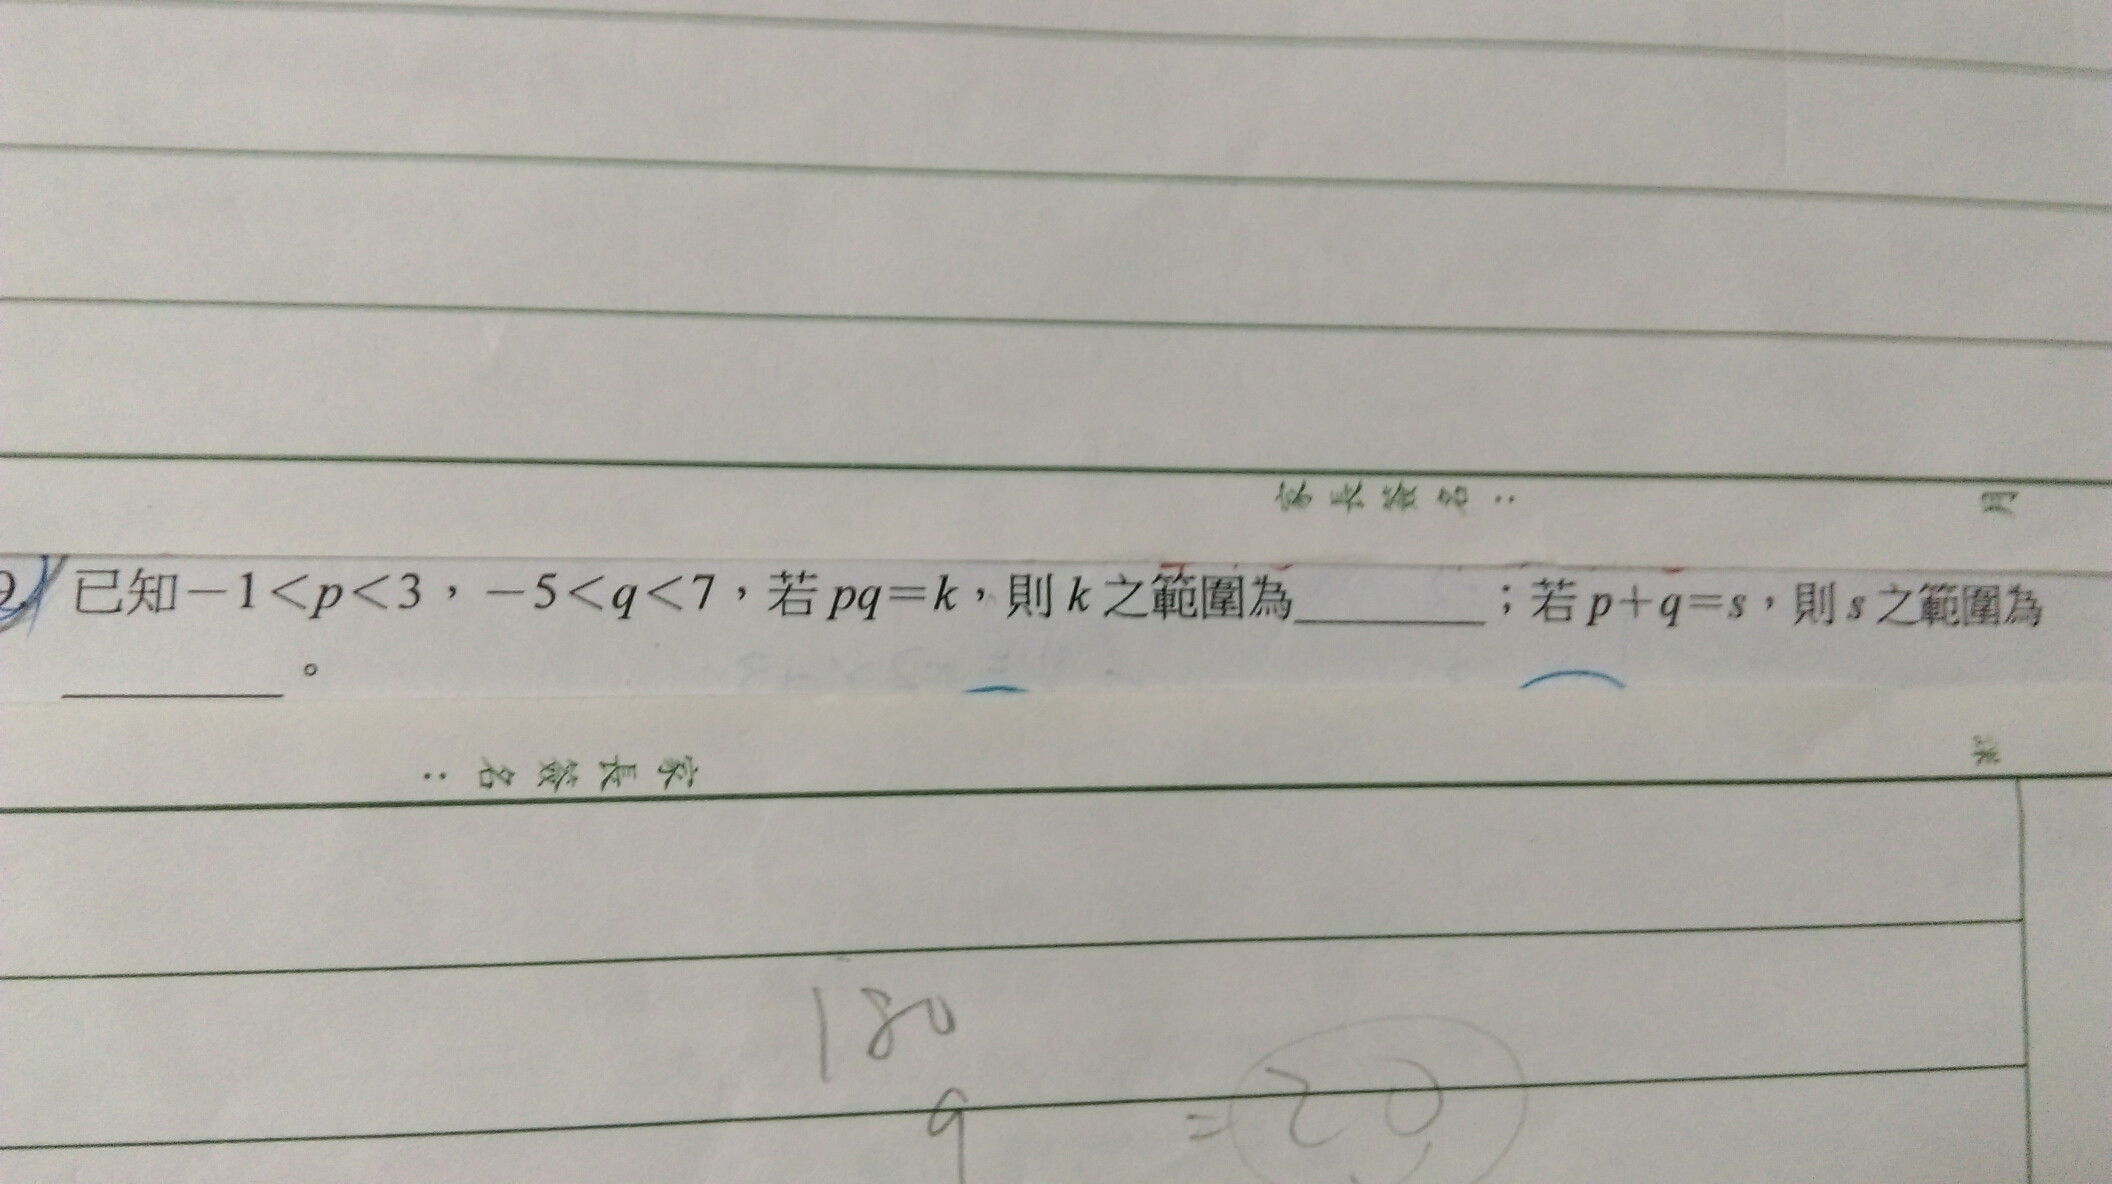 家長簽名：
月
9. 已知－1＜p＜3，－5＜q＜7，若 pq＝k，則 k 之範圍為________；若 p＋q＝s，則 s 之範圍為
________。
家長簽名：
180
9 = 20